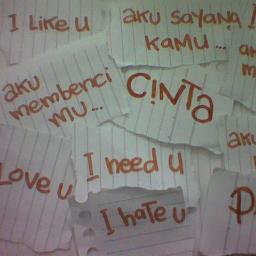 I Like u
aku sayang
kamu ...
aku
membenci
mu ...
CINTA
aku
Love u
I need u
I hate u